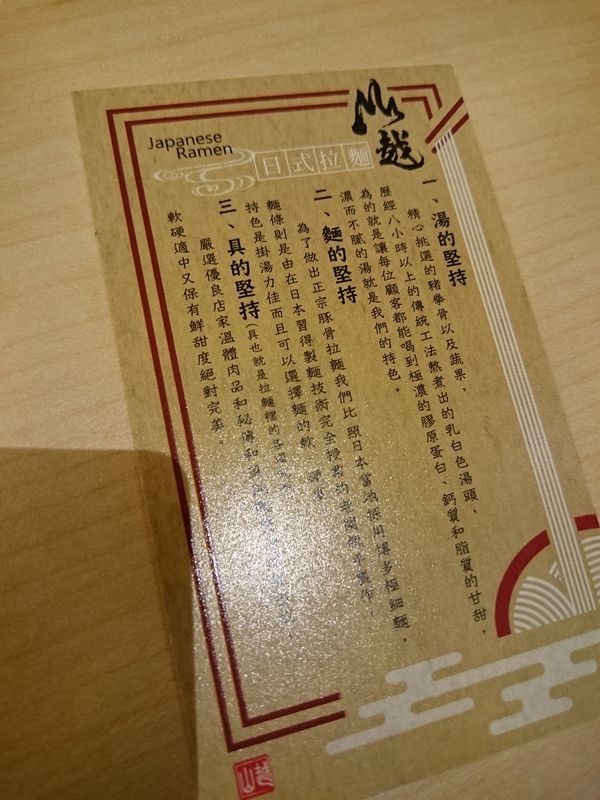 Japanese
Ramen
山越
日式拉麵
一、湯的堅持
精心挑選的豬拳骨以及蔬果，
歷經八小時以上的傳統工法熬煮出的乳白色湯頭，
為的就是讓每位顧客都能喝到極濃的膠原蛋白、鈣質和脂質的甘甜，
濃而不膩的湯就是我們的特色。
二、麵的堅持
為了做出正宗豚骨拉麵我們比照日本當地採用博多極細麵，
麵條則是由在日本習得製麵技術完全授業的老闆親手製作，
特色是掛湯力佳而且可以選擇麵的軟硬度
三、具的堅持(具也就是拉麵裡的各項
嚴選優良店家溫體肉品和秘傳和風
軟硬適中又保有鮮甜度絕對完美。
山越